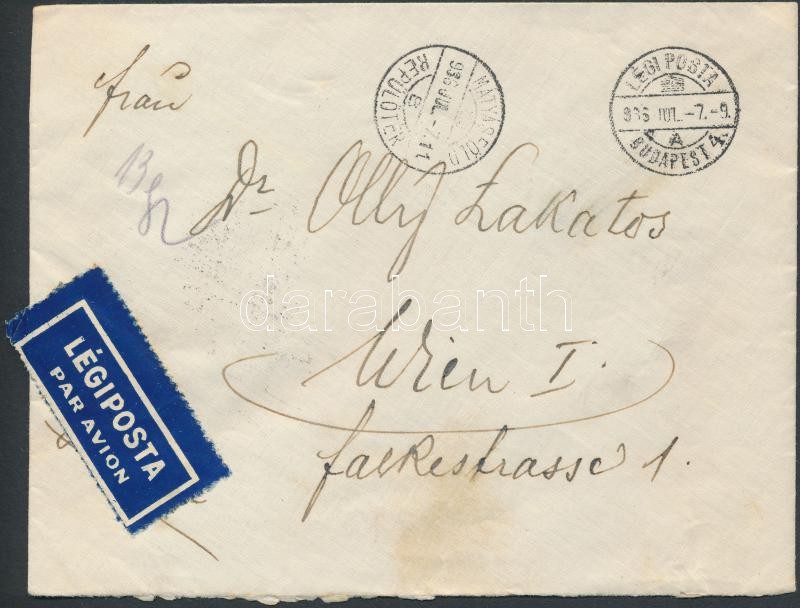 Frau
MÁTYÁSFÖLD
936 JUL. -7. 11
REPÜLŐTÉR
B
LÉGI POSTA
936 JUL. -7.-9.
A
BUDAPEST 4.
Dr Olly Lakatos
darabanth
Wien I.
Falkestrasse 1.
LÉGIPOSTA
PAR AVION